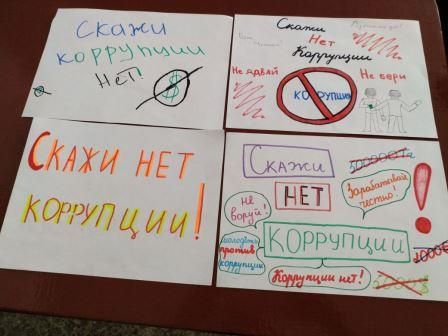 Скажи
коррупции
Нет!
$
Скажи
Нет
Коррупции
Не давай
Не бери
КОРРУПЦИЯ
СКАЖИ НЕТ
КОРРУПЦИИ!
Скажи
НЕТ
КОРРУПЦИИ
не
воруй!
Зарабатывай
честно!
молодёжь
против
коррупции
Коррупции нет!